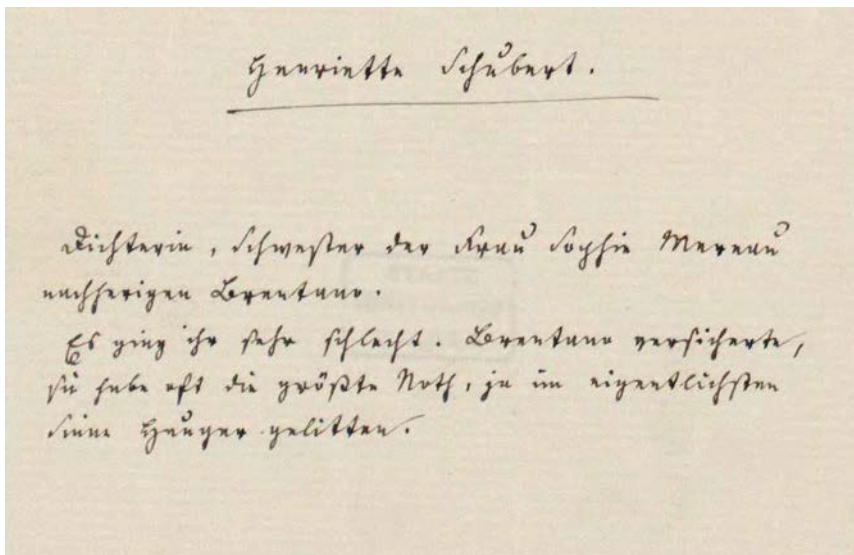 Henriette Schubert.
Dichterin, Schwester der Frau Sophie Mereau
nachherigen Brentano.
Es ging ihr sehr schlecht. Brentano versicherte,
sie habe oft die größte Noth, ja im eigentlichsten
Sinne Hunger gelitten.